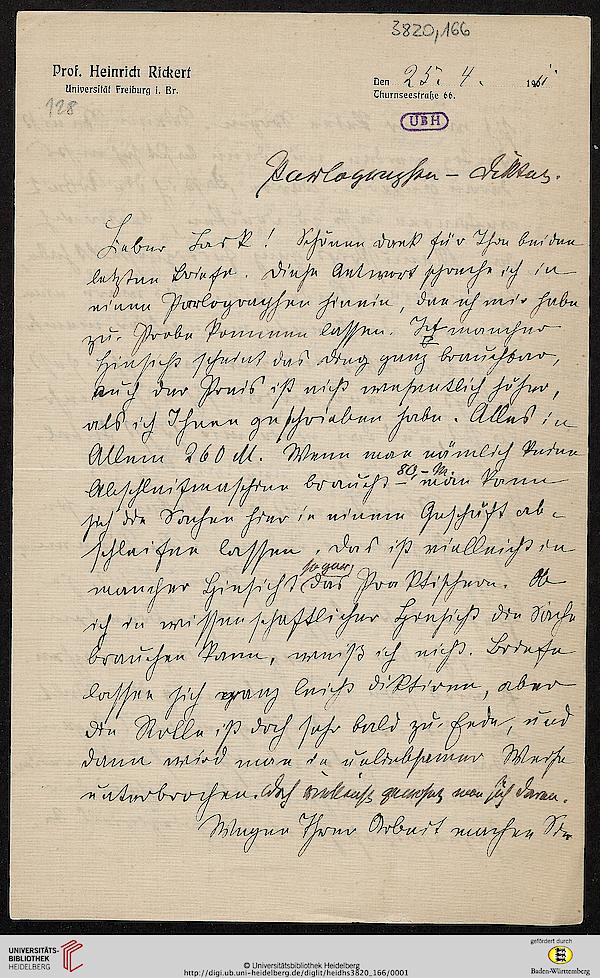 3820,166
Prof. Heinrich Rickert
Universität Freiburg i. Br.
128
Den 25. 4. 1911
Thurnseestraße 66.
UBH
Parlographen-Diktat.
Lieber Lask! Schönen Dank für Ihre beiden
letzten Briefe. Diese Antwort spreche ich in
einen Parlographen hinein, den ich mir habe
zur Probe kommen lassen. In mancher
Hinsicht scheint das Ding ganz brauchbar,
auch der Preis ist nicht wesentlich höher,
als ich Ihnen geschrieben habe. Alles in
Allem 260 M. Wenn man nämlich keine
Abschleifmaschine braucht – 80,– M. – man kann
sich die Sachen hier in einem Geschäft ab-
schleifen lassen. Das ist vielleicht in
mancher Hinsicht sogar das Praktischere. Ob
ich in wissenschaftlicher Hinsicht die Sache
brauchen kann, weiß ich nicht. Briefe
lassen sich ganz leicht diktieren, aber
die Rolle ist doch sehr bald zu Ende, und
dann wird man in unliebsamer Weise
unterbrochen. Doch vielleicht gewöhnt man sich daran.
Wegen Ihrer Arbeit machen Sie
UNIVERSITÄTS-
BIBLIOTHEK
HEIDELBERG
© Universitätsbibliothek Heidelberg
http://digi.ub.uni-heidelberg.de/diglit/heidhs3820_166/0001
gefördert durch
Baden-Württemberg